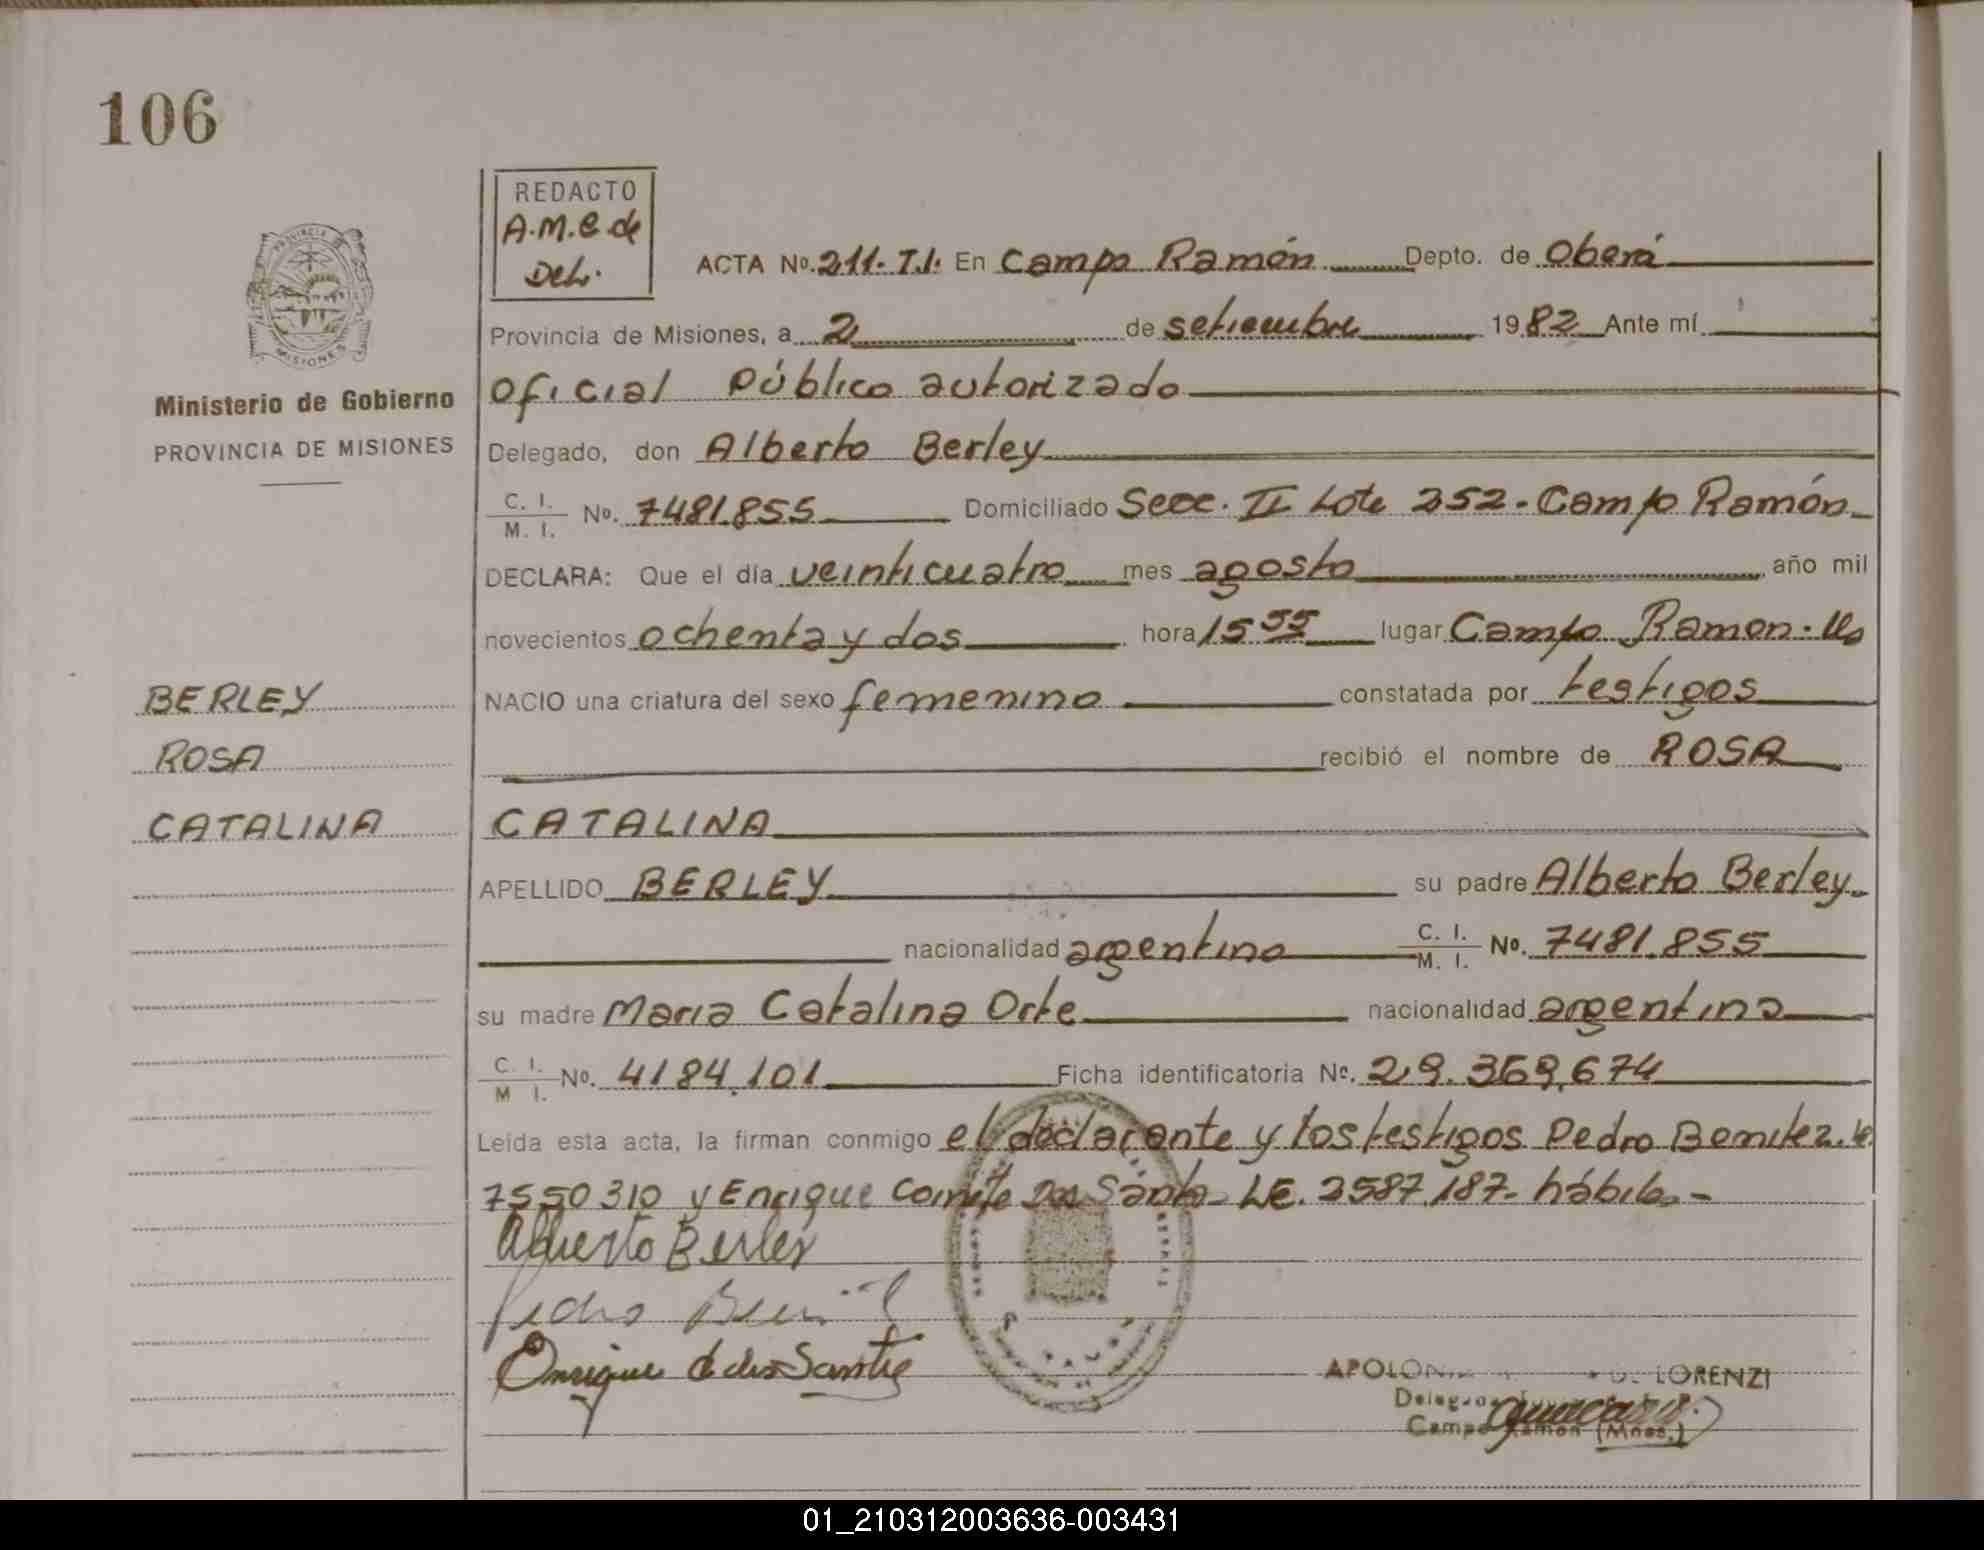 106
REDACTO
A.M.C. de
Del.
ACTA Nº. 211. T.I. En Campo Ramón Depto. de Oberá
Provincia de Misiones, a 2 de setiembre 1982 Ante mí
Oficial Público autorizado
PROVINCIA DE
MISIONES
Ministerio de Gobierno
PROVINCIA DE MISIONES
Delegado, don Alberto Berley
C. I. / M. I. Nº. 7481.855 Domiciliado Secc. II Lote 252 - Campo Ramón
DECLARA: Que el día veinticuatro mes agosto año mil
novecientos ochenta y dos hora 15 55 lugar Campo Ramon.
BERLEY
ROSA
CATALINA
NACIO una criatura del sexo femenino constatada por testigos
recibió el nombre de ROSA
CATALINA
APELLIDO BERLEY su padre Alberto Berley
nacionalidad argentino C. I. / M. I. Nº. 7481.855
su madre Maria Catalina Orte nacionalidad argentina
C. I. / M I. Nº. 4184.101 Ficha identificatoria Nº. 29.369.674
Leída esta acta, la firman conmigo el declarante y los testigos Pedro Benitez. le
7550310 y Enrique Dos Santos LE. 2587.187- hábiles-
Alberto Berley
Pedro
Enrique
APOLON DE LORENZI
Campo Ramón (Mnes.)
01_210312003636-003431